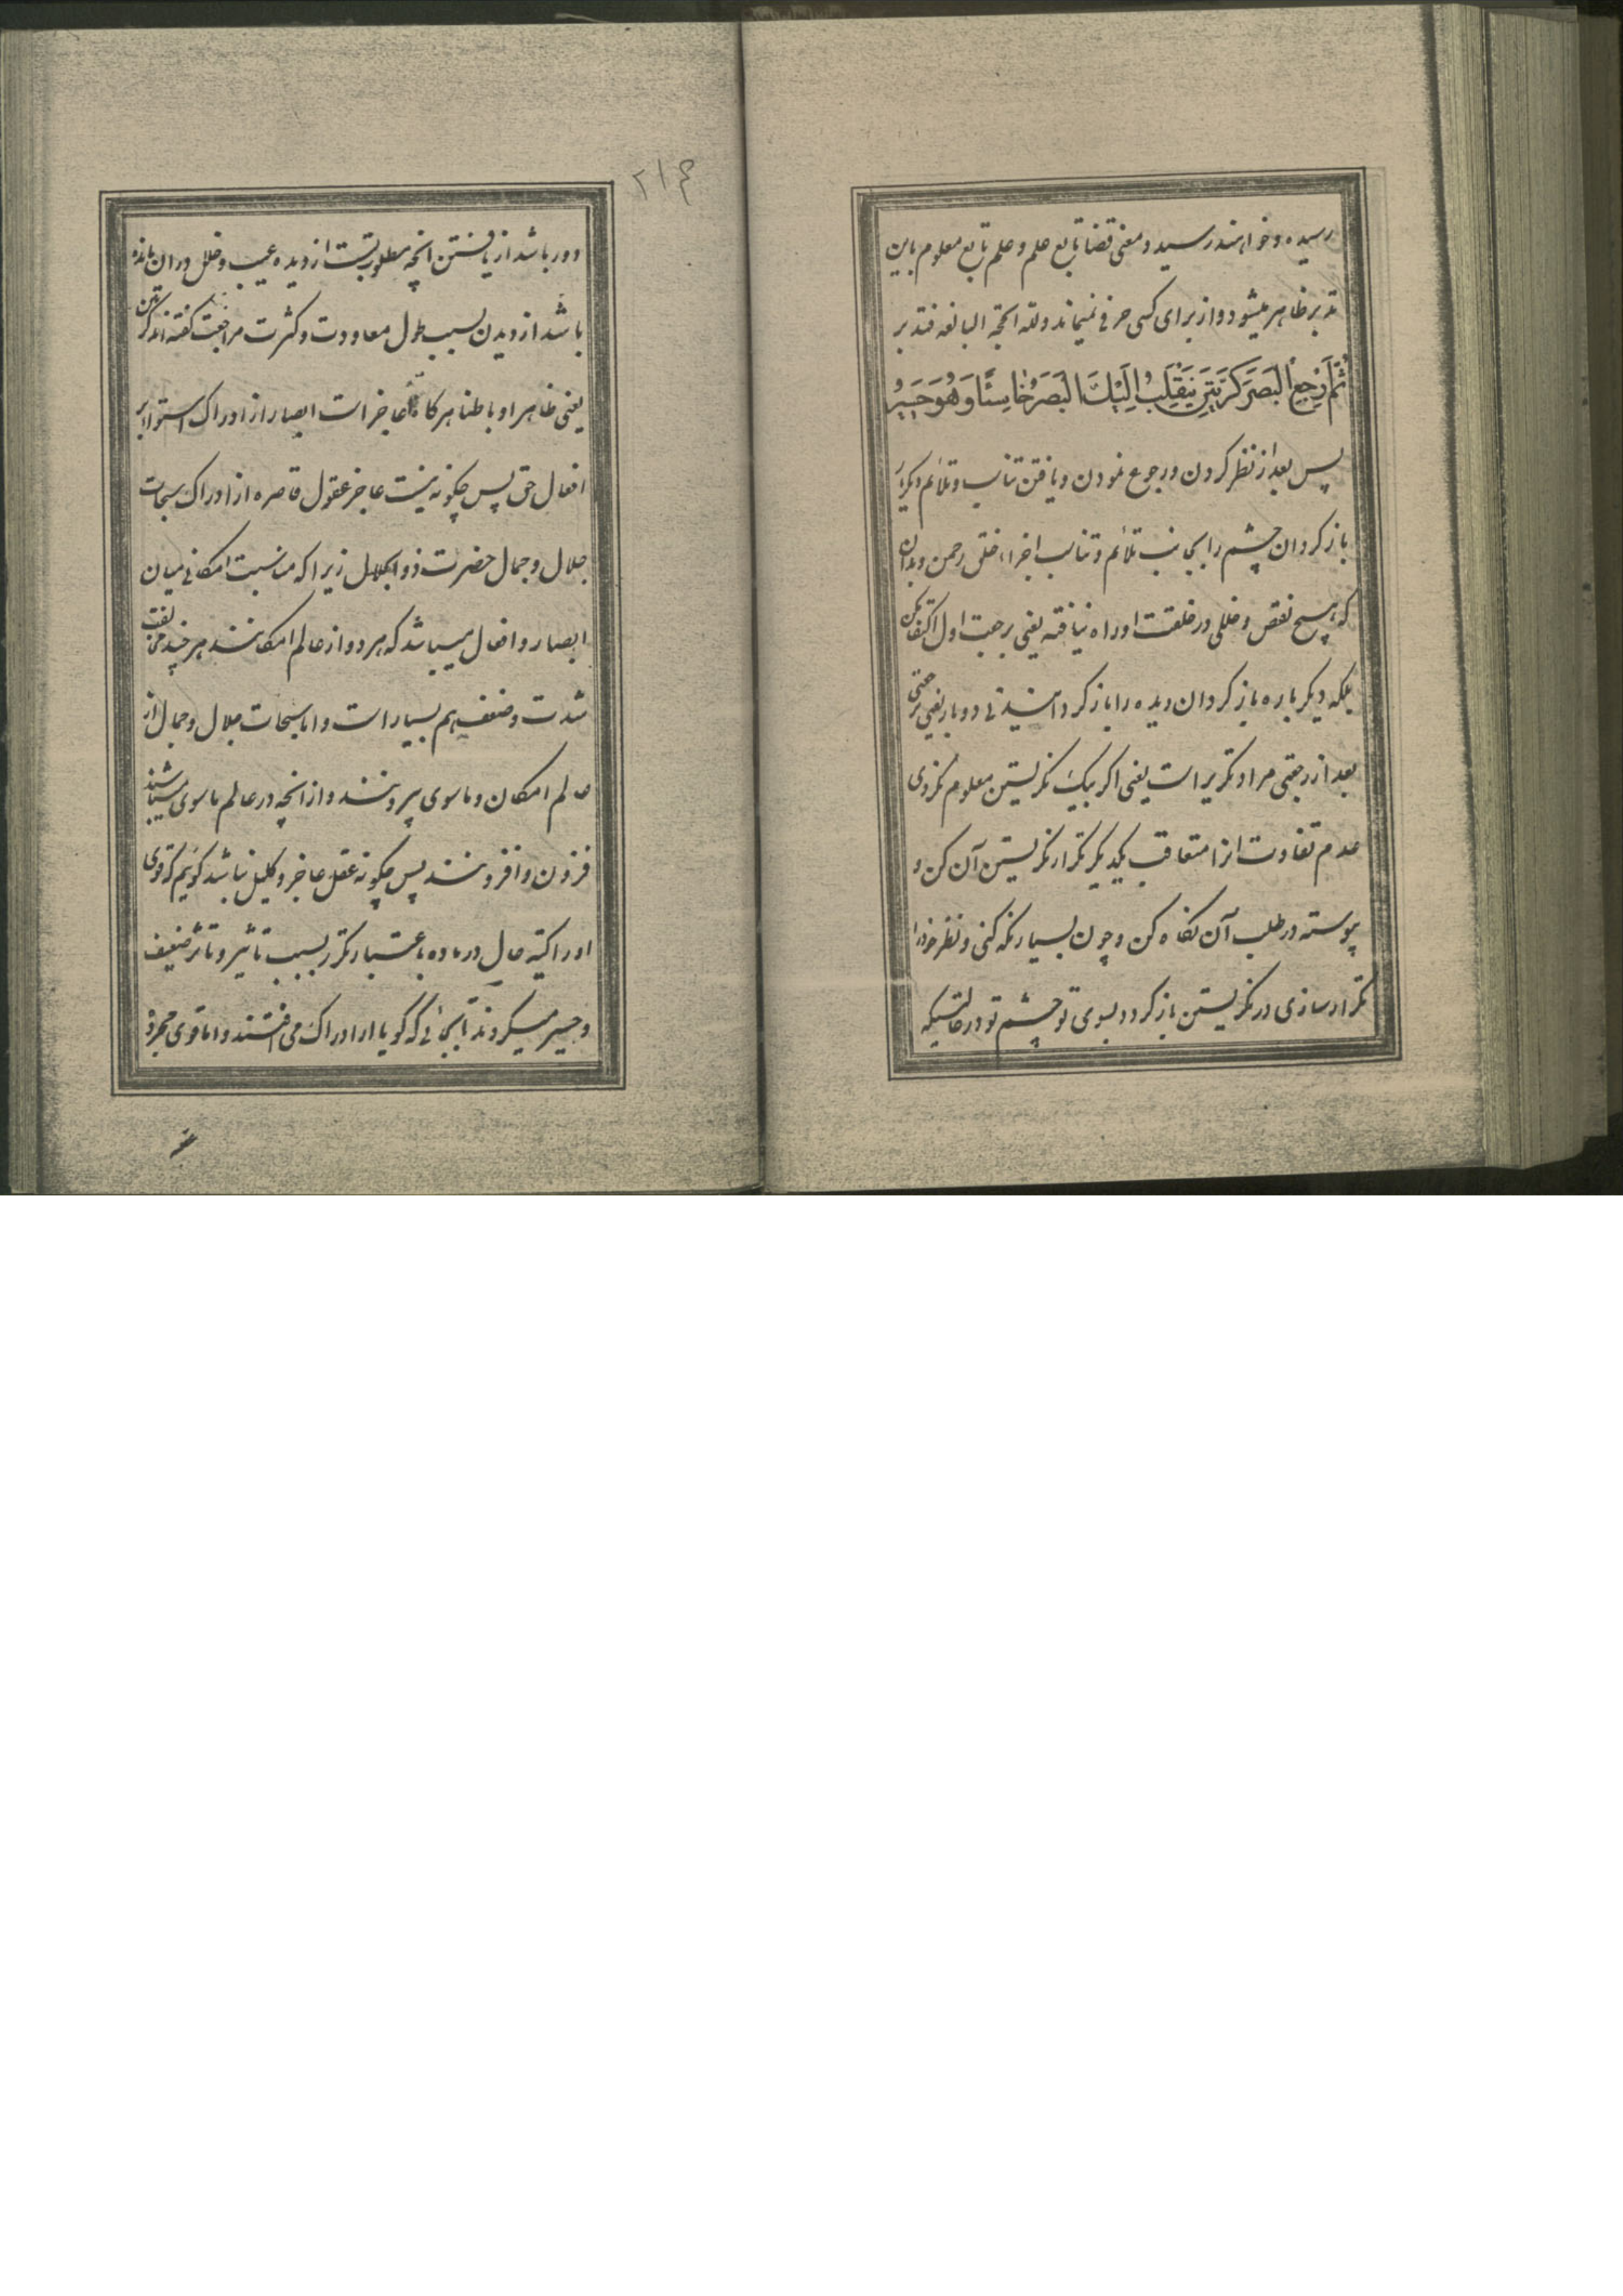 رسیده و خواهند رسید و معنی قضا تابع علم و علم تابع معلوم باین
تدبر ظاهر میشود و از برای کسی حرفی نمیماند ولله الحجة البالغه فتدبر
ثُمَّ ارْجِعِ الْبَصَرَ كَرَّتَيْنِ يَنْقَلِبْ اِلَيْكَ الْبَصَرُ خَاسِئًا وَهُوَ حَسِيرٌ
پس بعد از نظر کردن و رجوع نمودن و یافتن تناسب و تلائم دیگر
باز کردان چشم را بجانب تلائم و تناسب اجزاء خلق رحمن و بدان
که هیچ نقص و خللی در خلقت او راه نیافته یعنی برجعت اول اکتفا مکن
بلکه دیگر باره باز کردان دیده را باز کردانیدنی دو بار یعنی رجعتی
بعد از رجعتی مراد تکریر است یعنی اکر بیک نکریستن معلوم نکردی
عدم تفاوت انرا متعاقب یکدیگر تکرار نکریستن آن کن و
پیوسته در طلب آن نگاه کن و چون بسیار نگه کنی و نظر خود را
تکرار سازی در نکریستن باز کردد بسوی تو چشم تو در حالتیکه
۲۱۴
دور باشد از یافتن انچه مطلوبتست از دیده عیب و خلل در ان مانده
باشد از دیدن بسبب طول معاودت و کثرت مراجعت گفته اند کرتین
یعنی ظاهرا و باطنا هرکاه عاجز است ابصار از ادراک اسرار
افعال حق پس چکونه نیست عاجز عقول قاصره از ادراک سبحات
جلال و جمال حضرت ذو الجلال زیرا که مناسبت امکانی میان
ابصار و افعال میباشد که هر دو از عالم امکانند هر چند مخالفت
شدت و ضعف هم بسیار است و اما سبحات جلال و جمال از
عالم امکان و ماسوی بیرونند و از انچه در عالم ماسوی میباشند
فزون و افزونند پس چکونه عقل عاجز و کلیل نباشد کوئیم که قوی
ادراکیه حال در ماده باعتبار تکرر بسبب تاثیر و تاثر ضعیف
و حسیر میکردند تا بجائی که کویا از ادراک می افتند و اما قوی مجرده